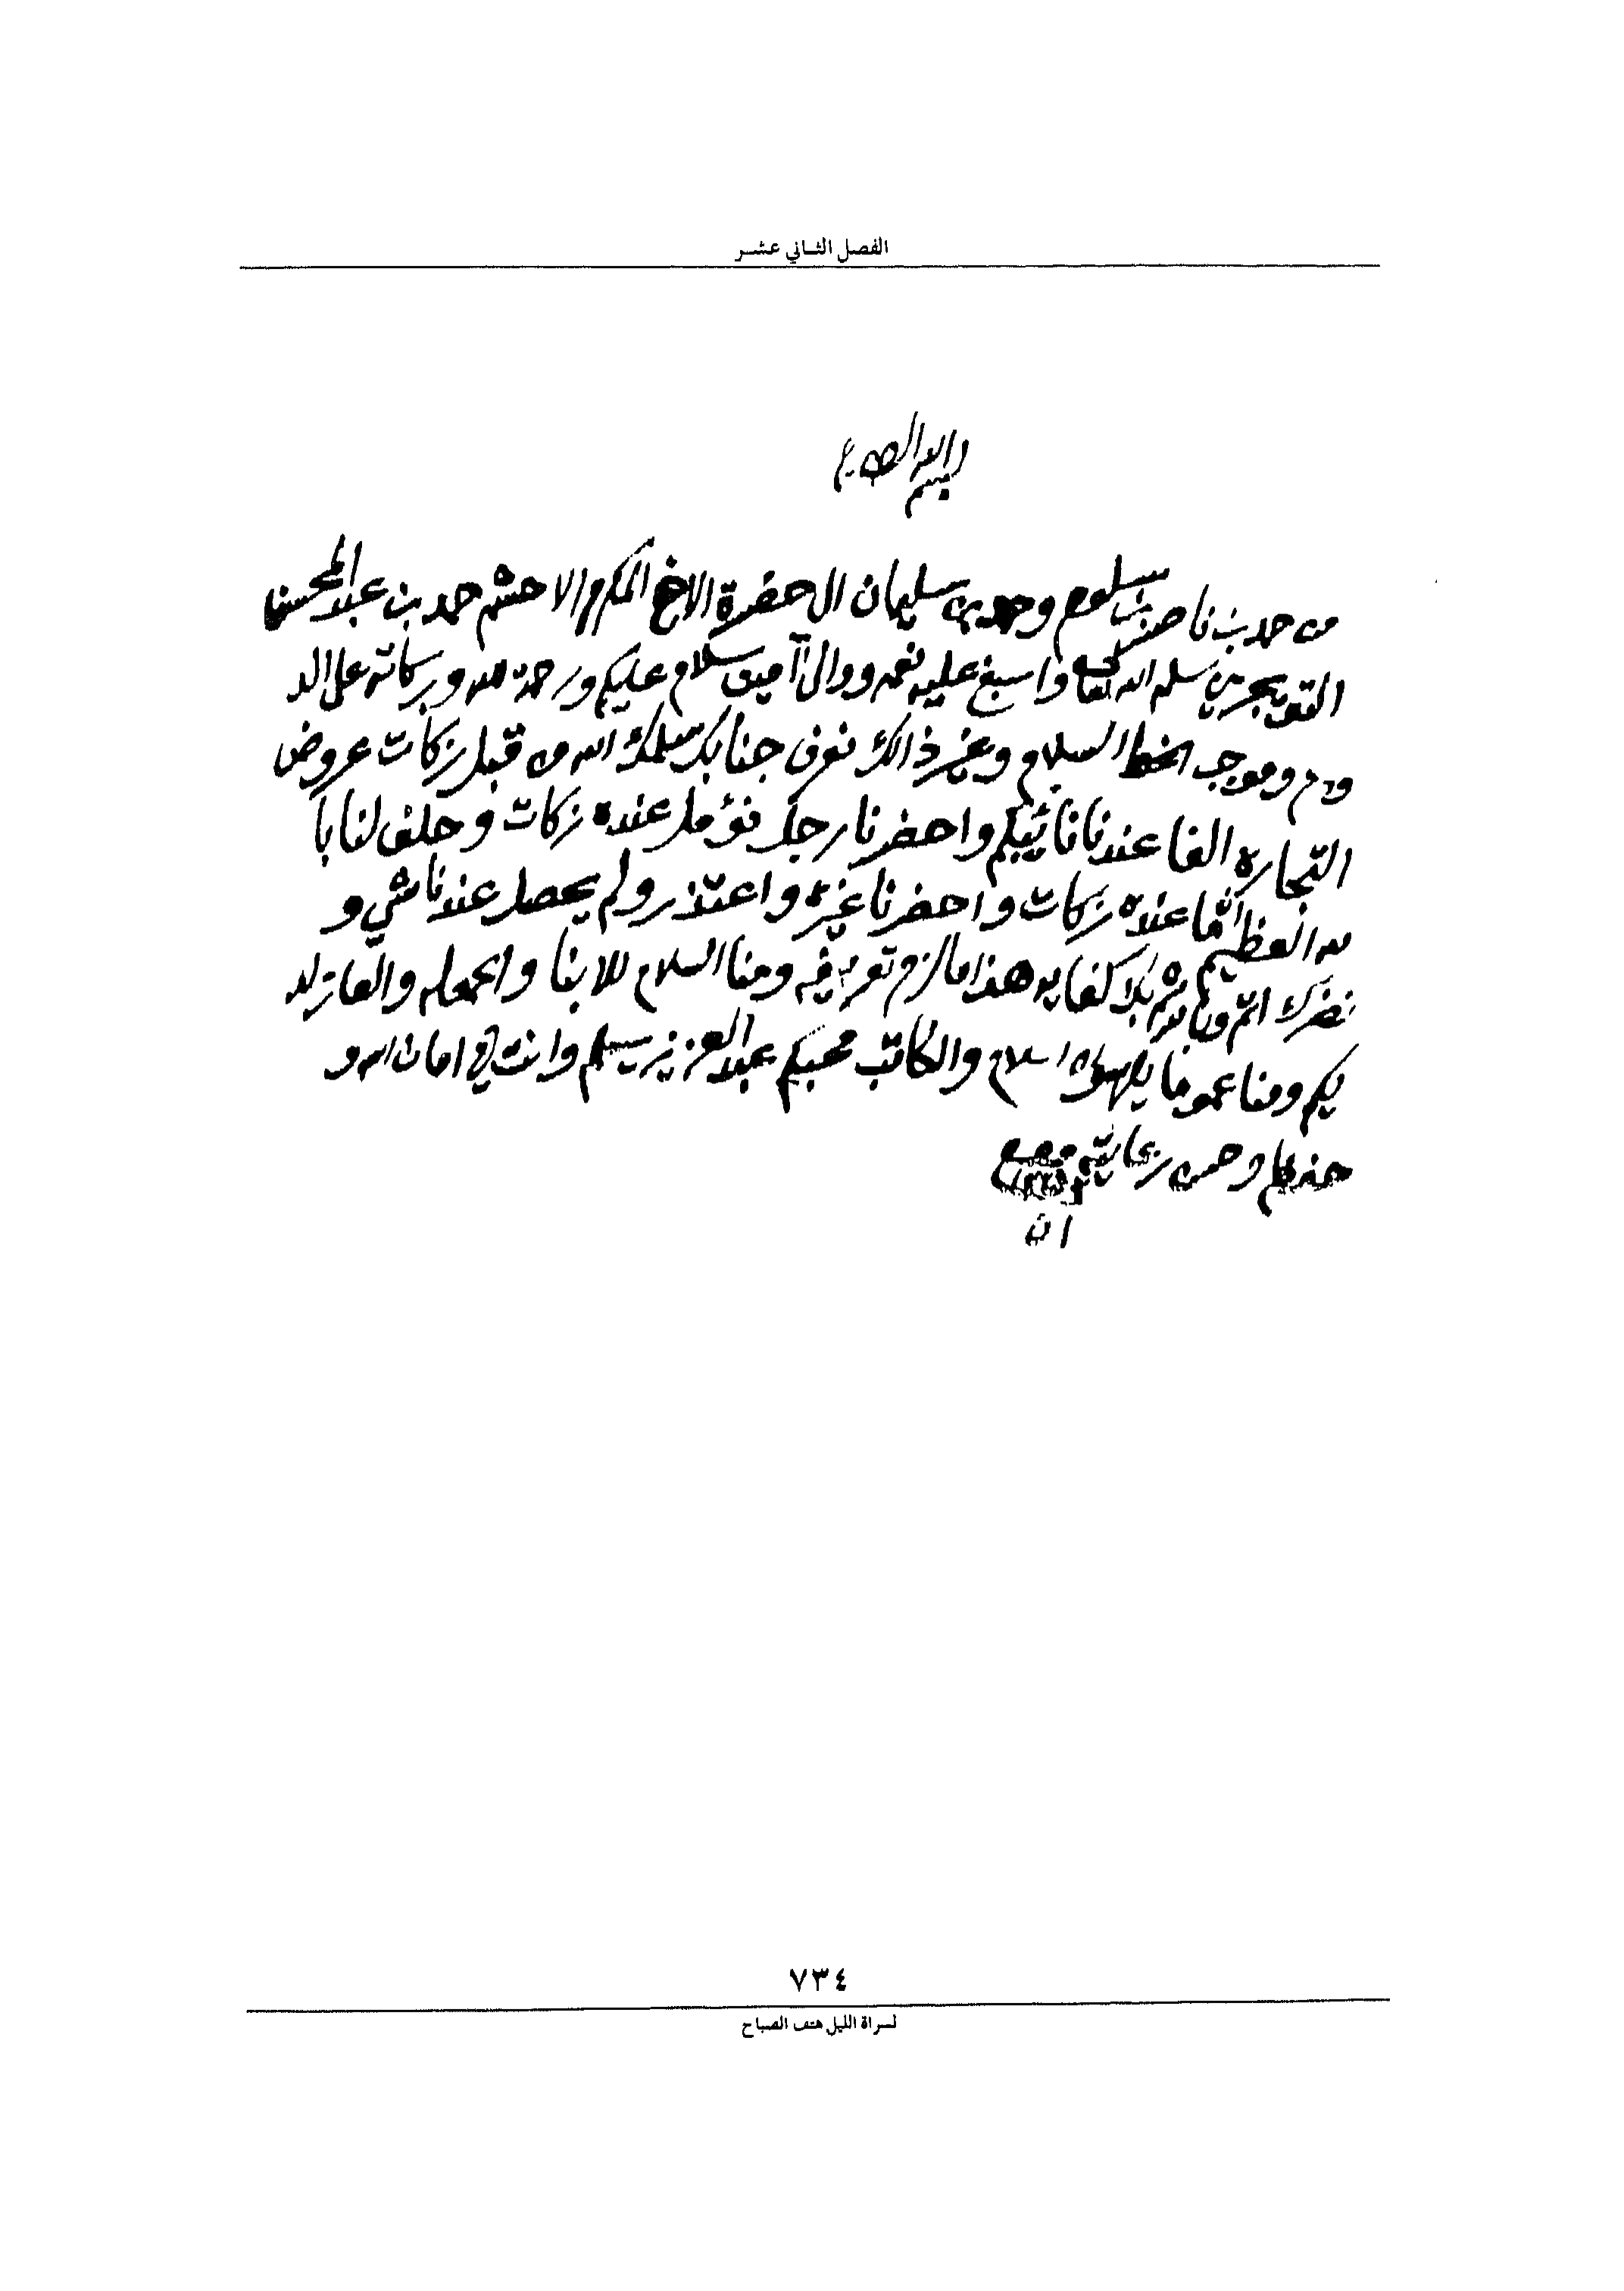 الفصل الثاني عشر
بسم الله الرحمن الرحيم
من حمد بن ناصر بن سلوم وحمد بن سليمان الى حضرة الاخ المكرم الاحشم حمد بن عبدالمحسن
التويجري سلمه الله تعالى واسبغ عليه نعمه ووالى آمين سلام عليكم ورحمة الله وبركاته على الد
وام وموجب الخط السلام وغير ذالك نعرف جنابك سلمك الله من قبل زكات عروض
التجاره الفا عندنا نائبكم واحضرنا رجل نؤمل عنده زكات وحلف لنا با
لله العظيم انما عنده زكات واحضرنا غيره واعتذر ولم يحصل عندنا شي و
نضرك اتم بلا كفايه هذا ما لزم تعريفه ومنا السلام للابنا والجمله والعاز لد
يكم ومنا عموما السلام والكاتب محبكم عبدالعزيز يسلم وانت في امان الله و
حفظه وحسن رعايته
٧٣٤
لسراة الليل هتف الصباح